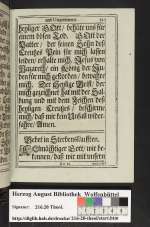 und Ungewitter.
heyliger GOtt/ behüte uns für
einem bösen Tod. GOtt der
Vatter/ der seinen Sohn deß
Creutzes Pein für mich lassen
leiden/ erhalte mich. Jesus von
Nazareth/ ein König der Ju-
den für mich gestorben/ bewahre
mich. Der Heylige Geist/ der
mich gezeichnet hat mit der Tauf-
fung und mit dem Zeichen deß
heyligen Creutzes/ beschirme
mich/ daß mir kein Unfall wider-
fahre/ Amen.
Gebet in Sterbensläufften.
Allmächtiger Gott/ wir be-
kennen/ daß wir mit unsern
Herzog August Bibliothek Wolfenbüttel
Signatur: 216.20 Theol.